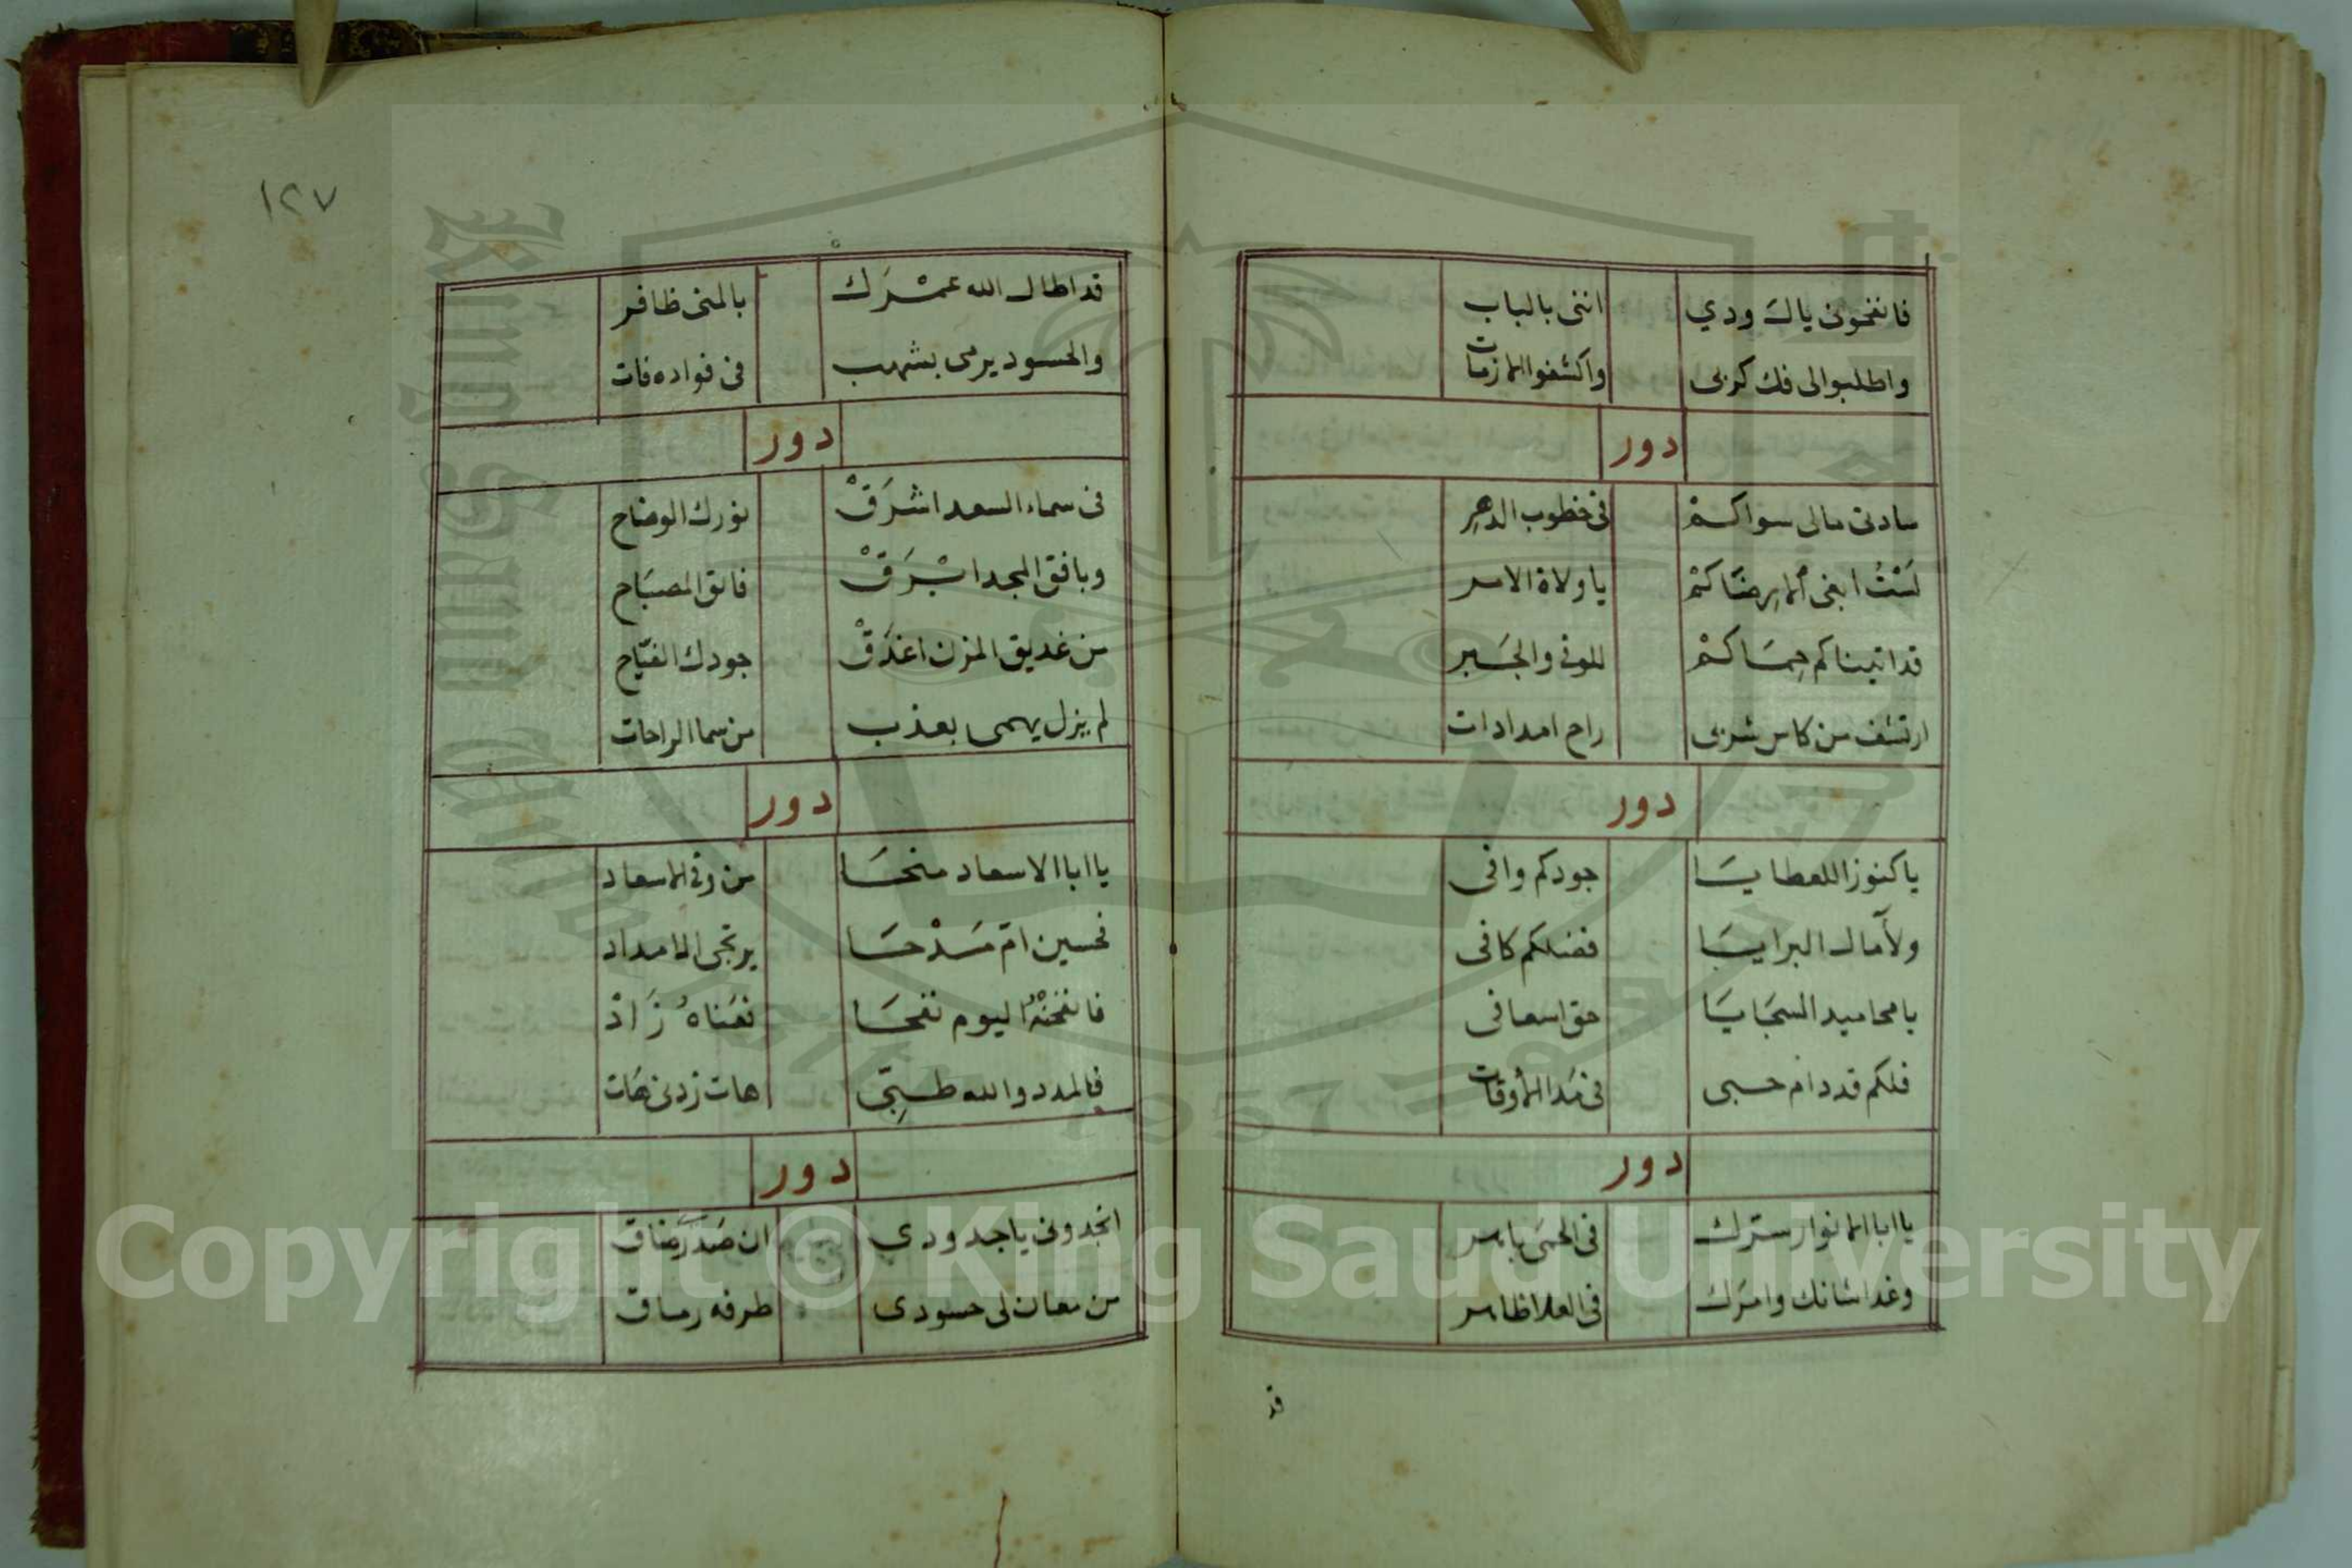 فانفحونى يال ودي اننى بالباب
واطلبوالى فك كربى واكشفوا الازمات
دور
سادتى مالى سواكمْ فى خطوب الدهرِ
لَسْتُ ابغى اِلا رضَاكمْ ياولاة الامر
قد اتيناكم حِمَاكمْ والجَبر
ارتشف من كاس شربى راح امدادات
دور
ياكنوزا للعطايَا جودكم وافى
ولآمال البرايَا فضلكم كافى
يامحاميد السجَايَا حق اسعافى
فلكم قد دام حسبى فى مَدا الأوقات
دور
يا ابا الانوار سترك فى الحمَى باهر
وغدا شانك وامرَك فى العلا ظاهر
قد
١٢٧
قد اطال الله عمْرَك بالمنى ظافر
والحسود يرمى بشهب فى فواده فات
دور
فى سماء السعد اشرَقْ نورك الوضاح
وبافق المجد ابْرَقْ فائق المصبَاح
من غديق المزن اغدَقْ جودك الفيّاح
لم يزل يهمى بعذب من سما الراحات
دور
يا ابا الاسعاد منحَا من وفى الاسعاد
فحسين امّ مَدْحَا يرتجى الامداد
فانفحنْهُ اليوم نفحَا زَادْ
فالمدد والله طبِّى هات زدنى هَات
دور
انجدونى ياجدودي ان صَدرَ ضاق
من معان لى حسودى طرفه رماق